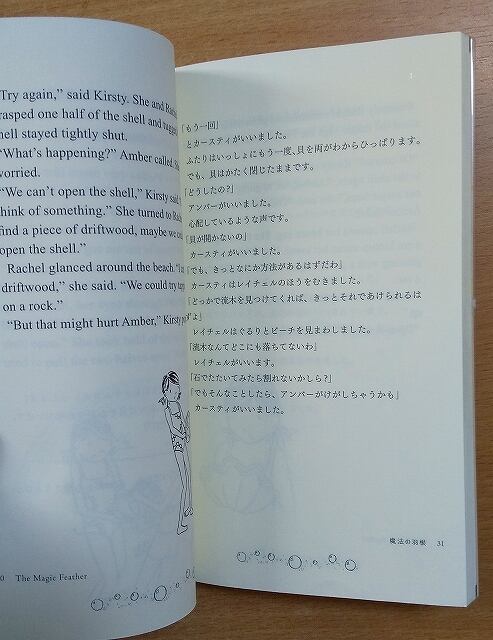 Try again,” said Kirsty. She and Rach
rasped one half of the shell and tugged
hell stayed tightly shut.
“What’s happening?” Amber called. S
worried.
“We can’t open the shell,” Kirsty said
hink of something.” She turned to Ra
find a piece of driftwood, maybe we c
open the shell.”
Rachel glanced around the beach. “I
driftwood,” she said. “We could try
on a rock.”
“But that might hurt Amber,” Kirsty
0 The Magic Feather
「もう一回」
とカースティがいいました。
ふたりはいっしょにもう一度、貝を両がわからひっぱります。
でも、貝はかたく閉じたままです。
「どうしたの?」
アンバーがいいました。
心配しているような声です。
「貝が開かないの」
カースティがいいました。
「でも、きっとなにか方法があるはずだわ」
カースティはレイチェルのほうをむきました。
「どっかで流木を見つけてくれば、きっとそれであけられるは
ずよ」
レイチェルはぐるりとビーチを見まわしました。
「流木なんてどこにも落ちてないわ」
レイチェルがいいます。
「石でたたいてみたら割れないかしら?」
「でもそんなことしたら、アンバーがけがしちゃうかも」
カースティがいいました。
魔法の羽根 31